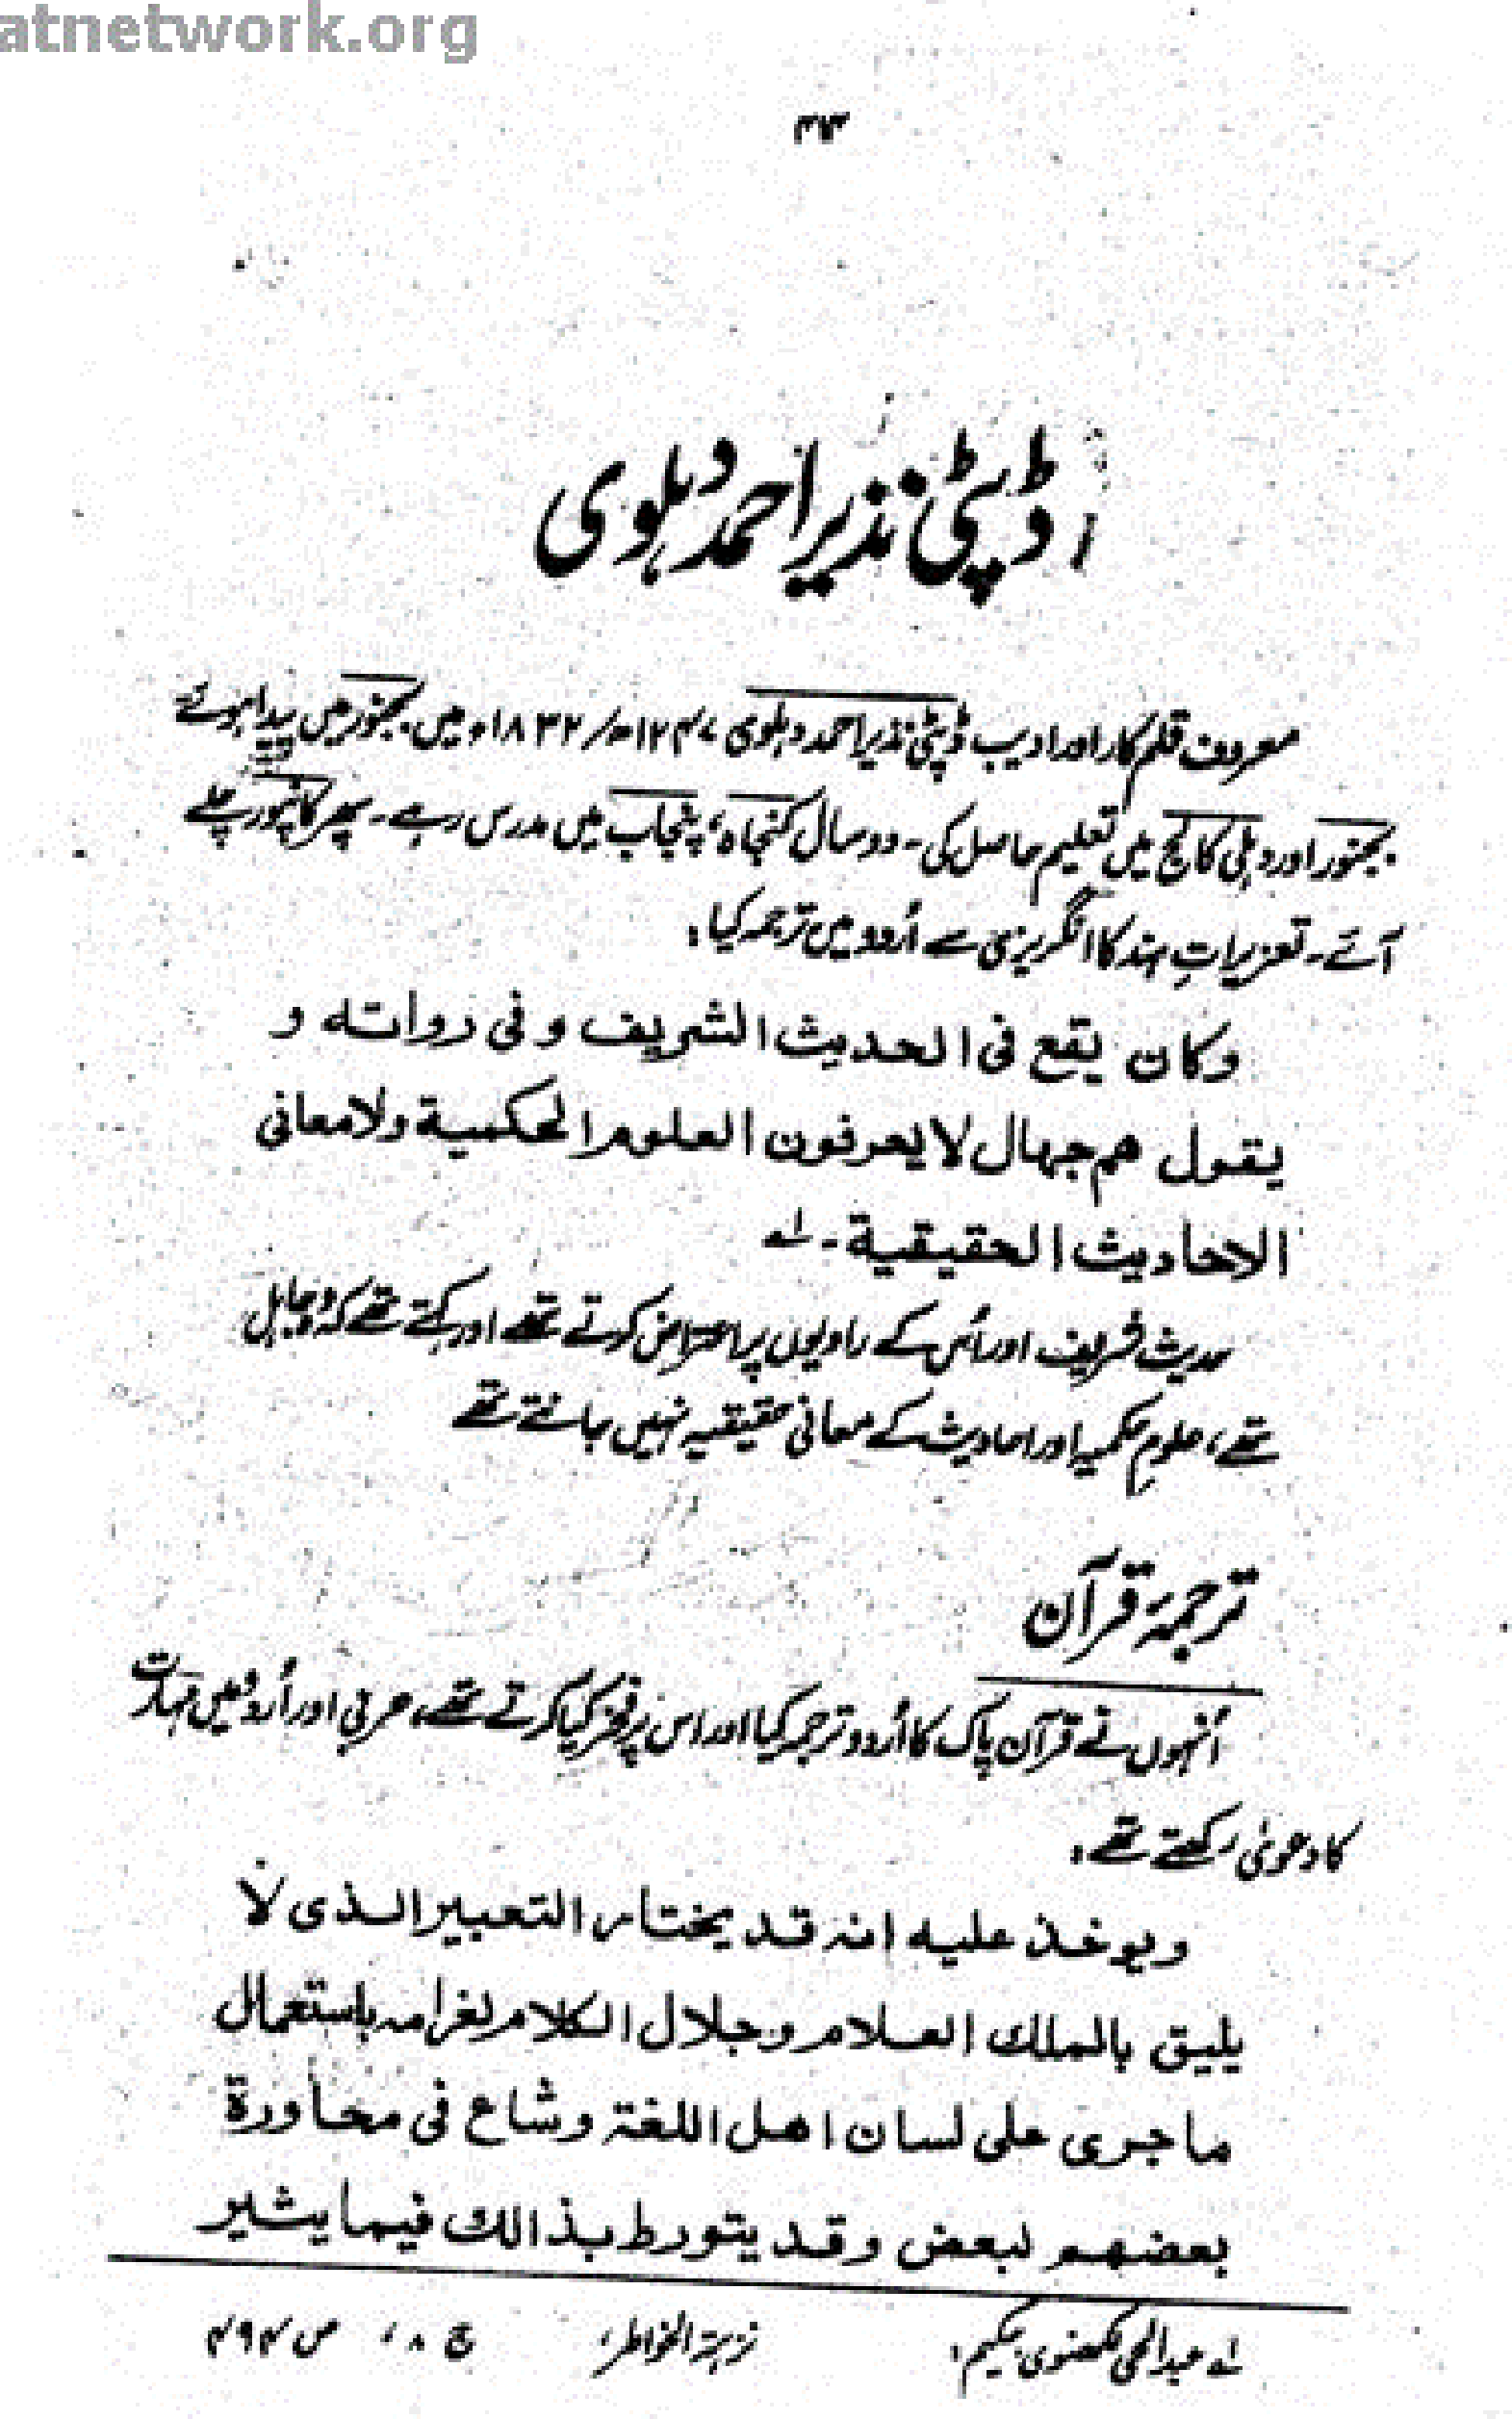 atnetwork.org
۴۳
ڈپٹی نذیر احمد دہلوی
معروف قلم کار اور ادیب ڈپٹی نذیر احمد دہلوی ۱۲۴۷ھ/۱۸۳۲ء میں بجنور میں پیدا ہوئے
بجنور اور دہلی کالج میں تعلیم حاصل کی۔ دو سال کنجاہ، پنجاب میں مدرس رہے۔ پھر کانپور چلے
آئے۔ تعزیراتِ ہند کا انگریزی سے اُردو میں ترجمہ کیا۔
وكان يقع فى الحديث الشريف وفى رواته و
يقول هم جهال لا يعرفون العلوم الحكمية ولا معانى
الاحاديث الحقيقية۔ لہ
حدیث شریف اور اُس کے راویوں پر اعتراض کرتے تھے اور کہتے تھے کہ وہ جاہل
تھے، علومِ حکمیہ اور احادیث کے معانی حقیقیہ نہیں جانتے تھے
ترجمۂ قرآن
اُنہوں نے قرآن پاک کا اُردو ترجمہ کیا اور اس پر فخر کیا کرتے تھے، عربی اور اُردو میں مہارت
کا دعویٰ رکھتے تھے۔
ويوخذ عليه انه قد يختار التعبير الذى لا
يليق بالملك العلام وجلال الكلام لغرامه باستعمال
ما جرى على لسان اهل اللغة وشاع فى محاورة
بعضهم لبعض وقد يتورط بذالك فيما يشير
لہ عبدالحی لکھنوی حکیم، نزہۃ الخواطر، ج ۸، ص ۴۹۴